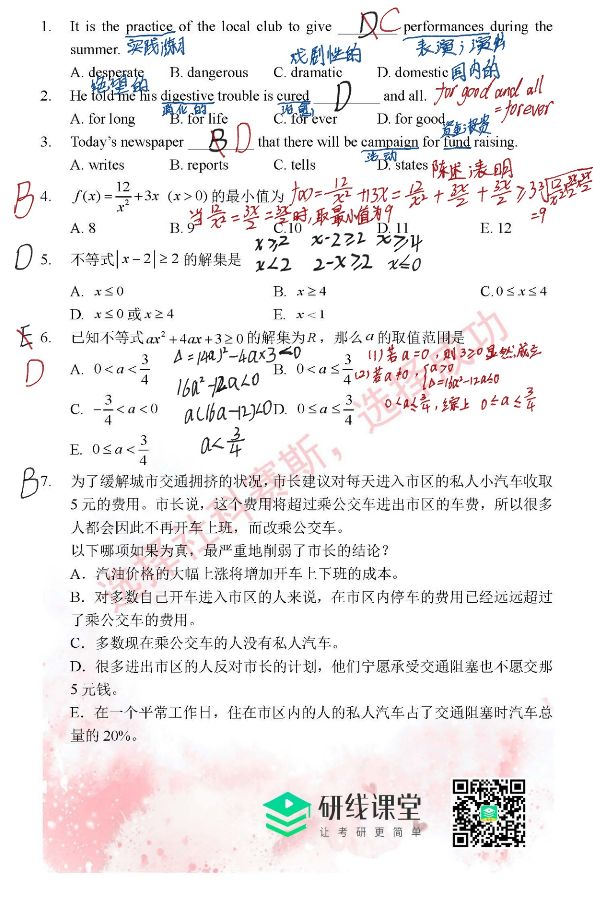 1. It is the practice of the local club to give D C performances during the
summer. 实践演习 戏剧性的 表演；演出
A. desperate B. dangerous C. dramatic D. domestic 国内的
绝望的
2. He told me his digestive trouble is cured D and all. for good and all
消化的 治愈 =forever
A. for long B. for life C. for ever D. for good
3. Today's newspaper B D that there will be campaign for fund raising.
活动
A. writes B. reports C. tells D. states 陈述 表明
B 4. f(x)=12/x²+3x (x>0)的最小值为 f(x)=12/x²+3x=12/x²+3x/2+3x/2≥3∛(12/x²·3x/2·3x/2)
=9
当12/x²=3x/2=3x/2时,取最小值为9
A. 8 B. 9 C. 10 D. 11 E. 12
x≥2 x-2≥2 x≥4
D 5. 不等式|x-2|≥2的解集是 x<2 2-x≥2 x≤0
A. x≤0 B. x≥4 C. 0≤x≤4
D. x≤0或x≥4 E. x<1
E 6. 已知不等式ax²+4ax+3≥0的解集为R，那么a的取值范围是
D
A. 0<a<3/4 B. 0<a≤3/4
Δ=(4a)²-4a×3<0
16a²-12a<0
a(16a-12)<0
a<3/4
(1)若a=0，则3≥0显然成立
(2)若a≠0，{a>0
Δ=16a²-12a≤0
0<a≤3/4,综上 0≤a≤3/4
C. -3/4<a<0 D. 0≤a≤3/4
E. 0≤a<3/4
B 7. 为了缓解城市交通拥挤的状况，市长建议对每天进入市区的私人小汽车收取
5元的费用。市长说，这个费用将超过乘公交车进出市区的车费，所以很多
人都会因此不再开车上班，而改乘公交车。
以下哪项如果为真，最严重地削弱了市长的结论？
A．汽油价格的大幅上涨将增加开车上下班的成本。
B．对多数自己开车进入市区的人来说，在市区内停车的费用已经远远超过
了乘公交车的费用。
C．多数现在乘公交车的人没有私人汽车。
D．很多进出市区的人反对市长的计划，他们宁愿承受交通阻塞也不愿交那
5元钱。
E．在一个平常工作日，住在市区内的人的私人汽车占了交通阻塞时汽车总
量的20%。
选择社科赛斯，选择成功
研线课堂
让考研更简单